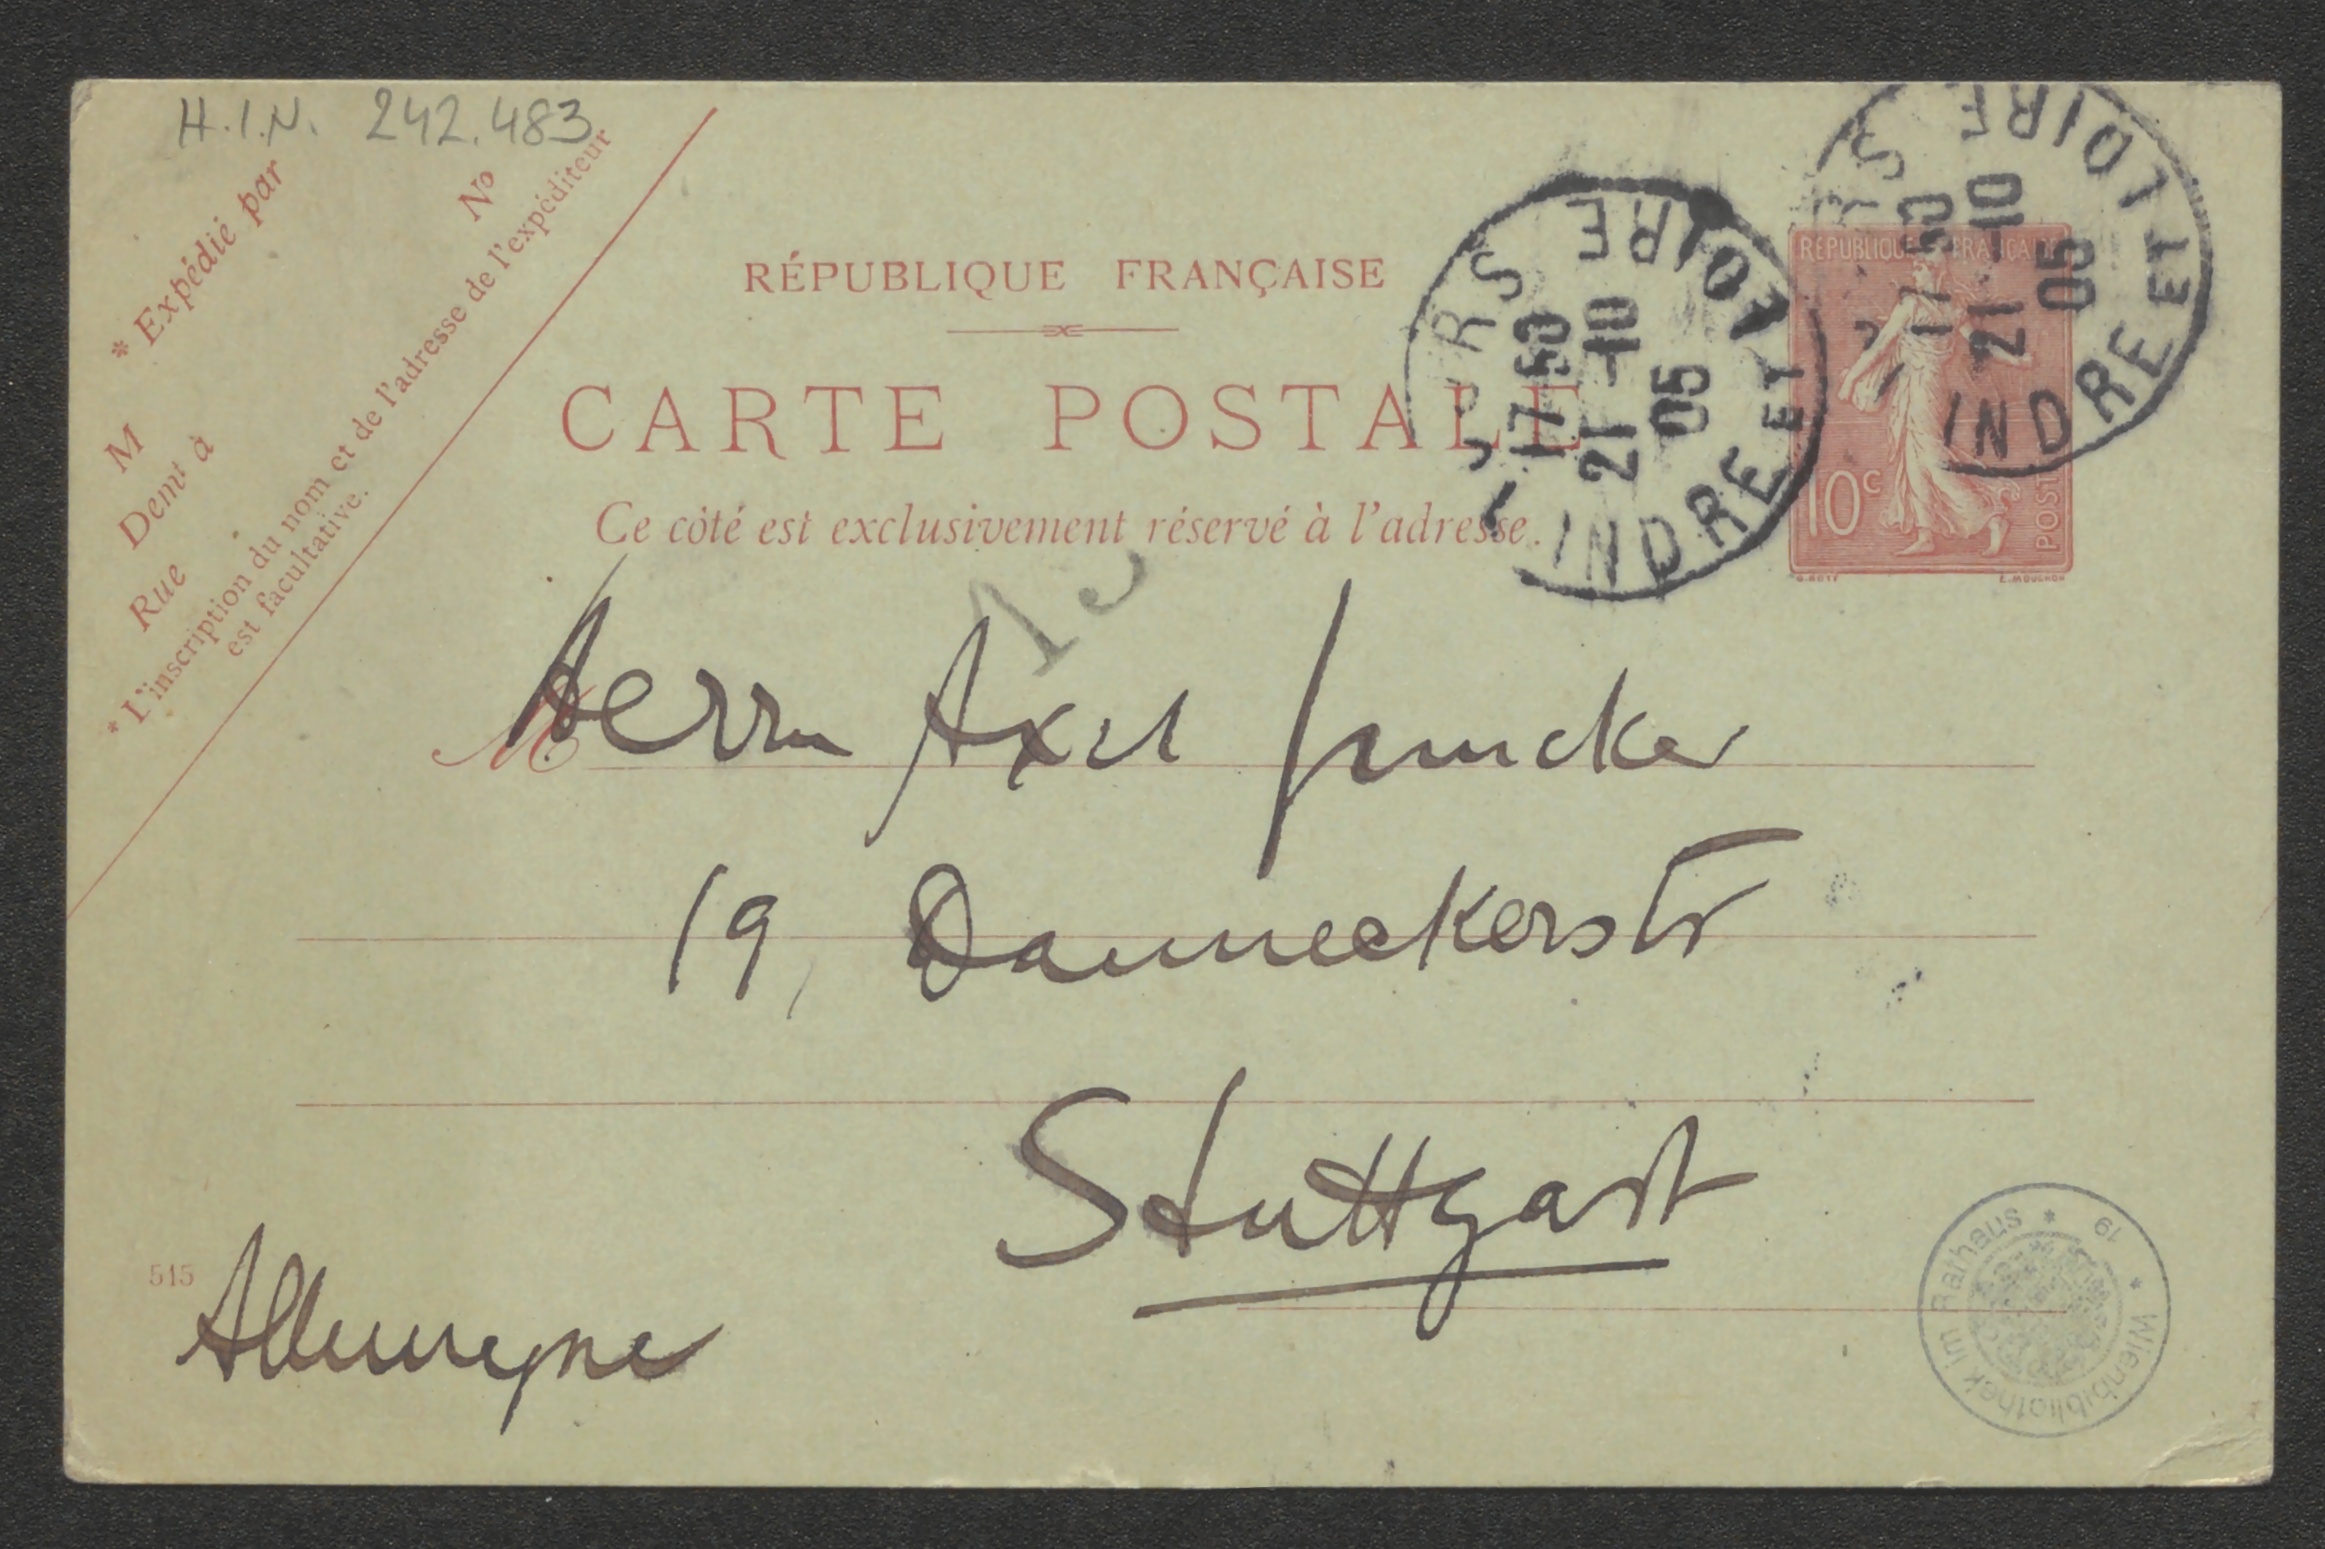 H.I.N. 242.483
* Expédié par
M
Demt à
Rue
No
* L'inscription du nom et de l'adresse de l'expéditeur
est facultative.
RÉPUBLIQUE FRANÇAISE
CARTE POSTALE
Ce côté est exclusivement réservé à l'adresse.
TOURS INDRE ET LOIRE
17 50
21 - 10
05
RS INDRE ET LOIRE
17 50
21 - 10
05
RÉPUBLIQUE FRANÇAISE
10c
POSTES
O. ROTY
E. MOUCHON
15
M
Herrn Axel Juncker
19, Danneckerstr
Stuttgart
515
Allemagne
Wienbibliothek im Rathaus * 19 *